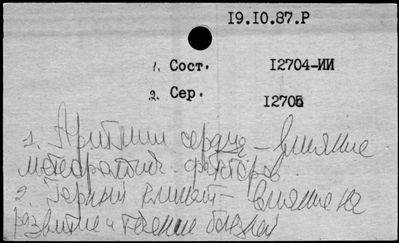 19.10.87.Р
1. Сост. 12704-ИИ
2. Сер. 12705
1. Аритмии сердца – влияние
метеоратич. факторов
2. Горный климат – влияние на
развитие и течение болезней